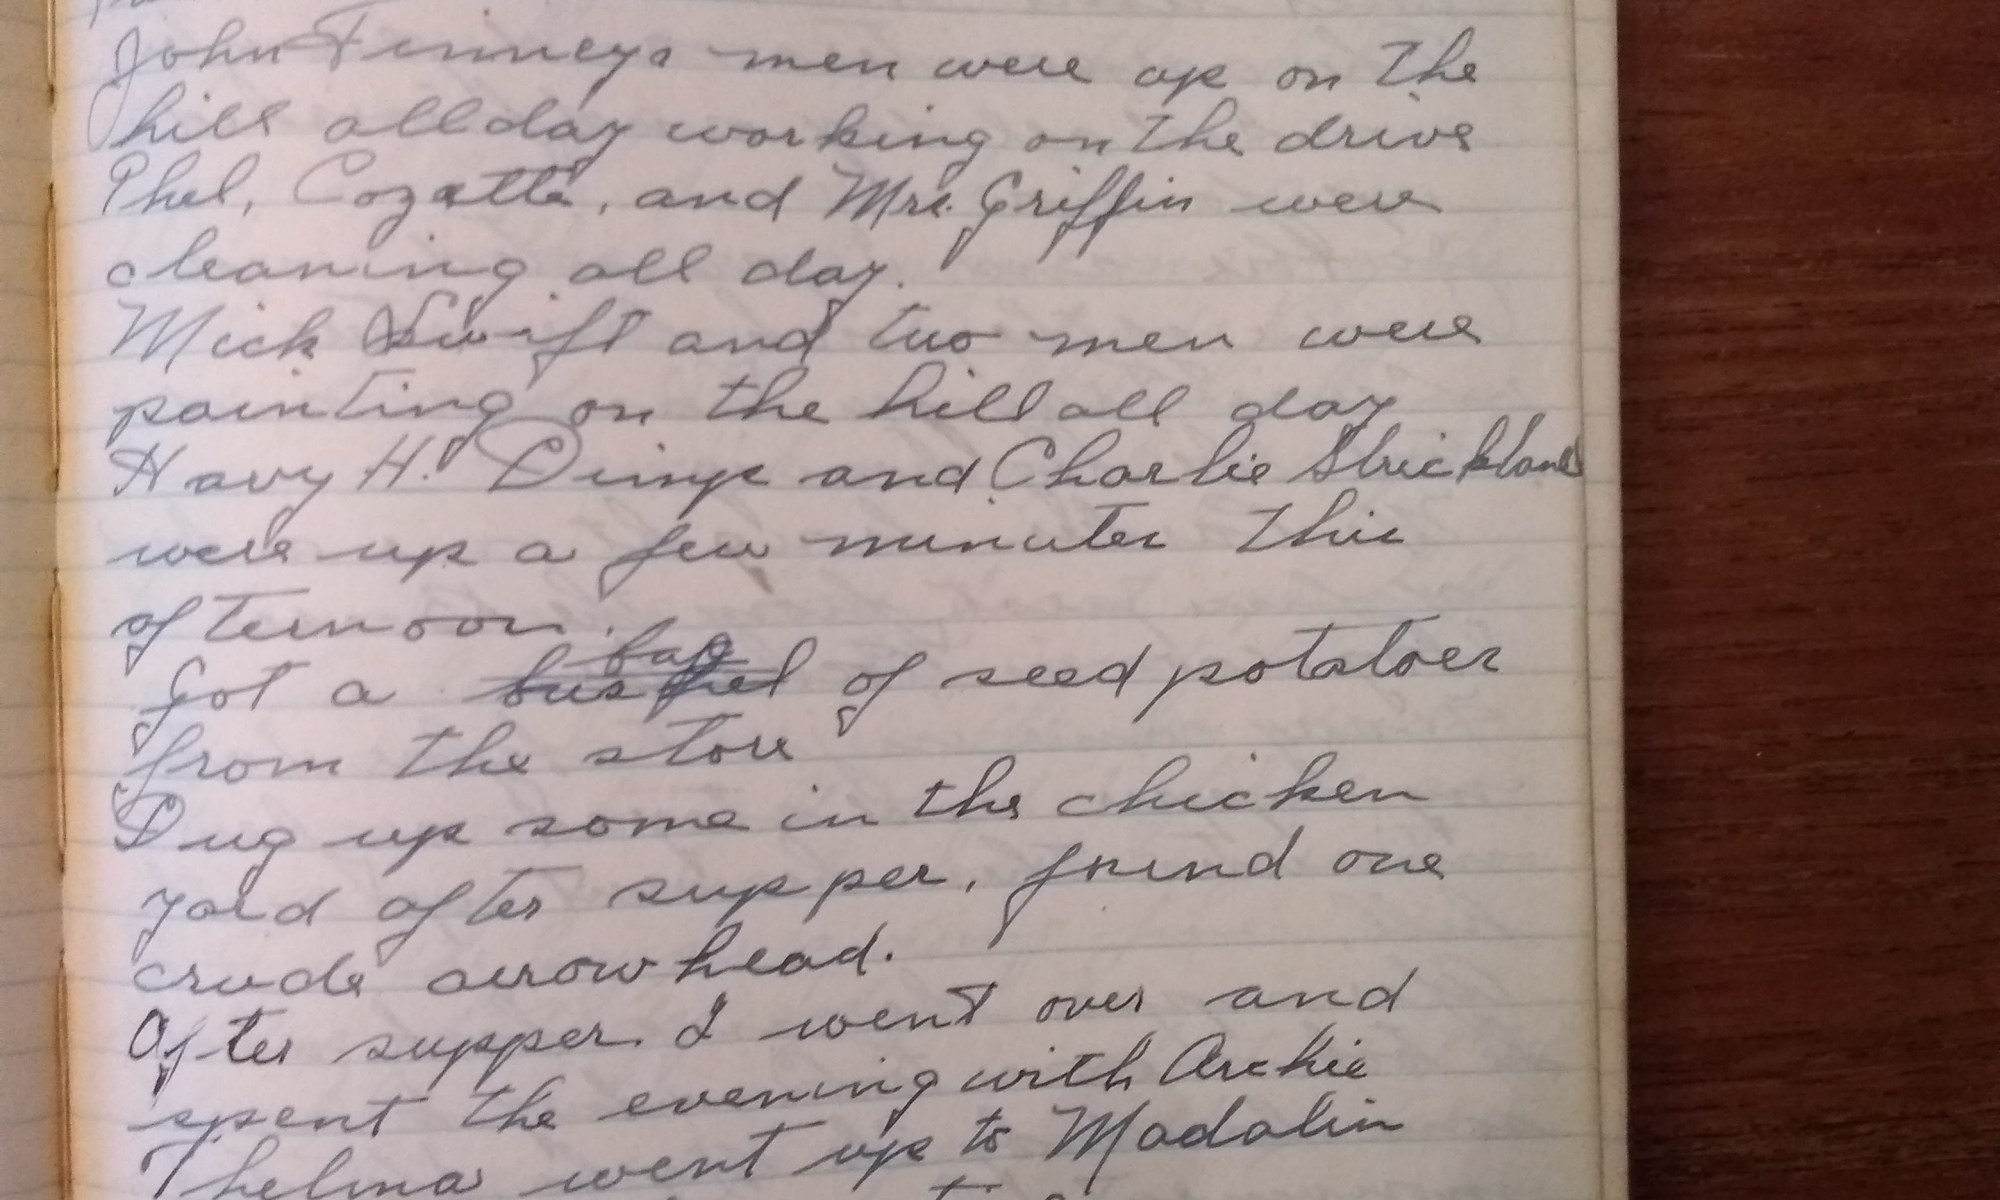 John Finneys men were up on the
hill all day working on the drive
Phel, Cozatte, and Mrs. Griffin were
cleaning all day.
Mick Swift and two men were
painting on the hill all day
H. and Charlie Strickland
were up a few minutes this
afternoon.
bag
Got a bushel of seed potatoes
from the store
Dug up some in the chicken
yard after supper, found one
crude arrowhead.
After supper I went over and
spent the evening with Archie
Thelma went up to Madalin